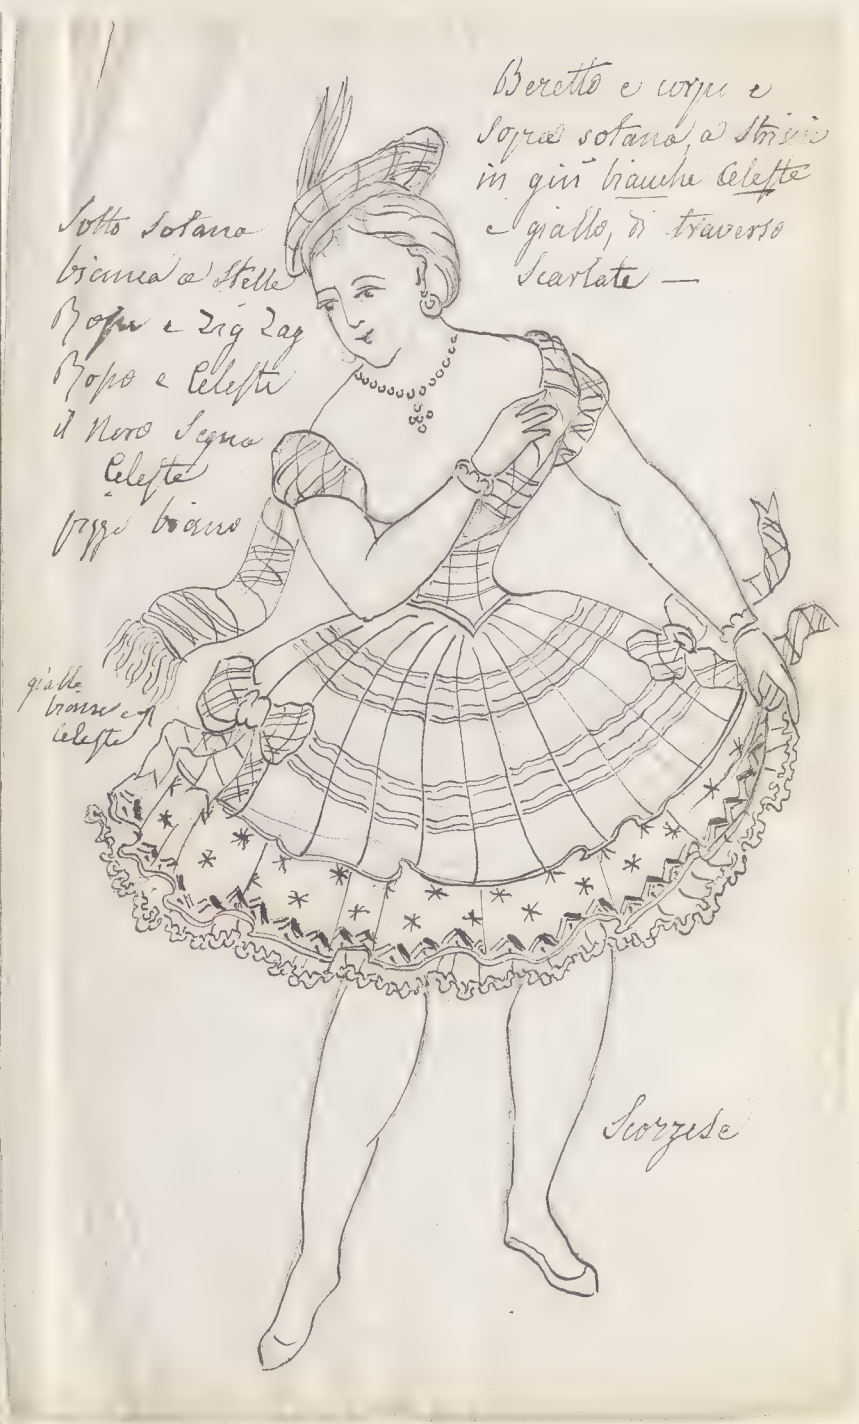 Beretto e corpu e
Sopra sotana, a Striscie
in giù bianche Celeste
e giallo, di traverso
Scarlate —
Sotto Sotana
bianca a Stelle
Rosse e Zig Zag
Rosso e Celeste
il Nero Segna
Celeste
pizzo bianco
gialle
bianse e
Celeste
Scozzese